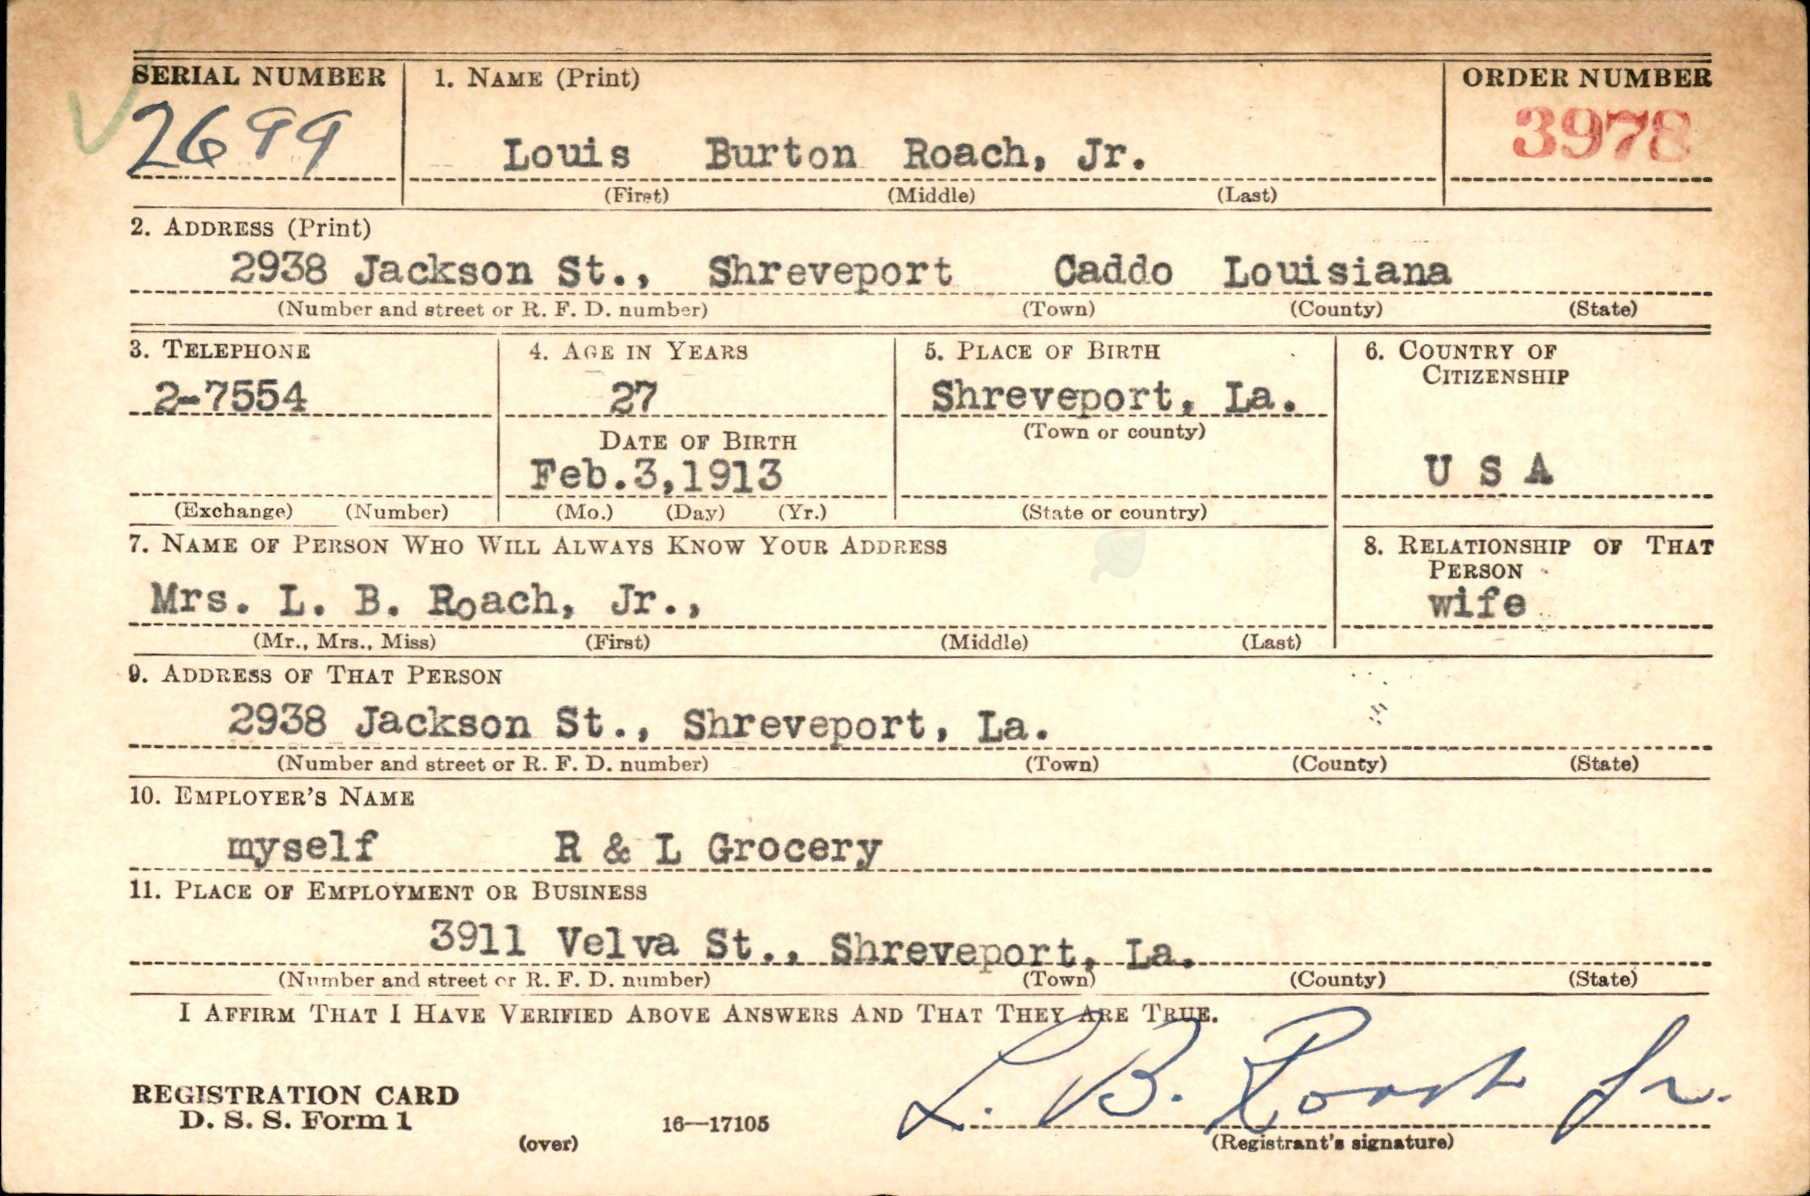 SERIAL NUMBER 1. NAME (Print) ORDER NUMBER
2699 Louis Burton Roach, Jr. 3978
(First) (Middle) (Last)
2. ADDRESS (Print)
2938 Jackson St., Shreveport Caddo Louisiana
(Number and street or R. F. D. number) (Town) (County) (State)
3. TELEPHONE 4. AGE IN YEARS 5. PLACE OF BIRTH 6. COUNTRY OF
CITIZENSHIP
2-7554 27 Shreveport, La.
DATE OF BIRTH (Town or county)
Feb.3,1913 U S A
(Exchange) (Number) (Mo.) (Day) (Yr.) (State or country)
7. NAME OF PERSON WHO WILL ALWAYS KNOW YOUR ADDRESS 8. RELATIONSHIP OF THAT
PERSON
Mrs. L. B. Roach, Jr., wife
(Mr., Mrs., Miss) (First) (Middle) (Last)
9. ADDRESS OF THAT PERSON
2938 Jackson St., Shreveport, La.
(Number and street or R. F. D. number) (Town) (County) (State)
10. EMPLOYER'S NAME
myself R & L Grocery
11. PLACE OF EMPLOYMENT OR BUSINESS
3911 Velva St., Shreveport, La.
(Number and street or R. F. D. number) (Town) (County) (State)
I AFFIRM THAT I HAVE VERIFIED ABOVE ANSWERS AND THAT THEY ARE TRUE.
L. B. Roach Jr.
REGISTRATION CARD
D. S. S. Form 1 16—17105
(over) (Registrant's signature)